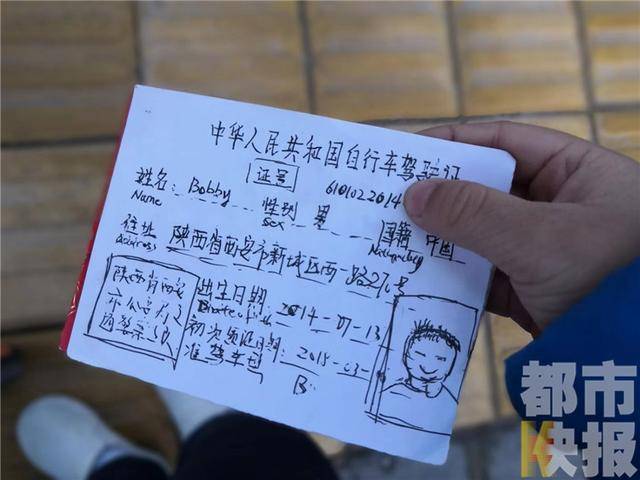 中华人民共和国自行车驾驶证
证号 6101022014
姓名: Bobby 性别 男 国籍 中国
Name Sex
住址 陕西省西安市新城区西一路
Address
陕西省西安
出生日期 2014-07-13
初次领证日期: 2018-03-
准驾车型 B
都市
快报